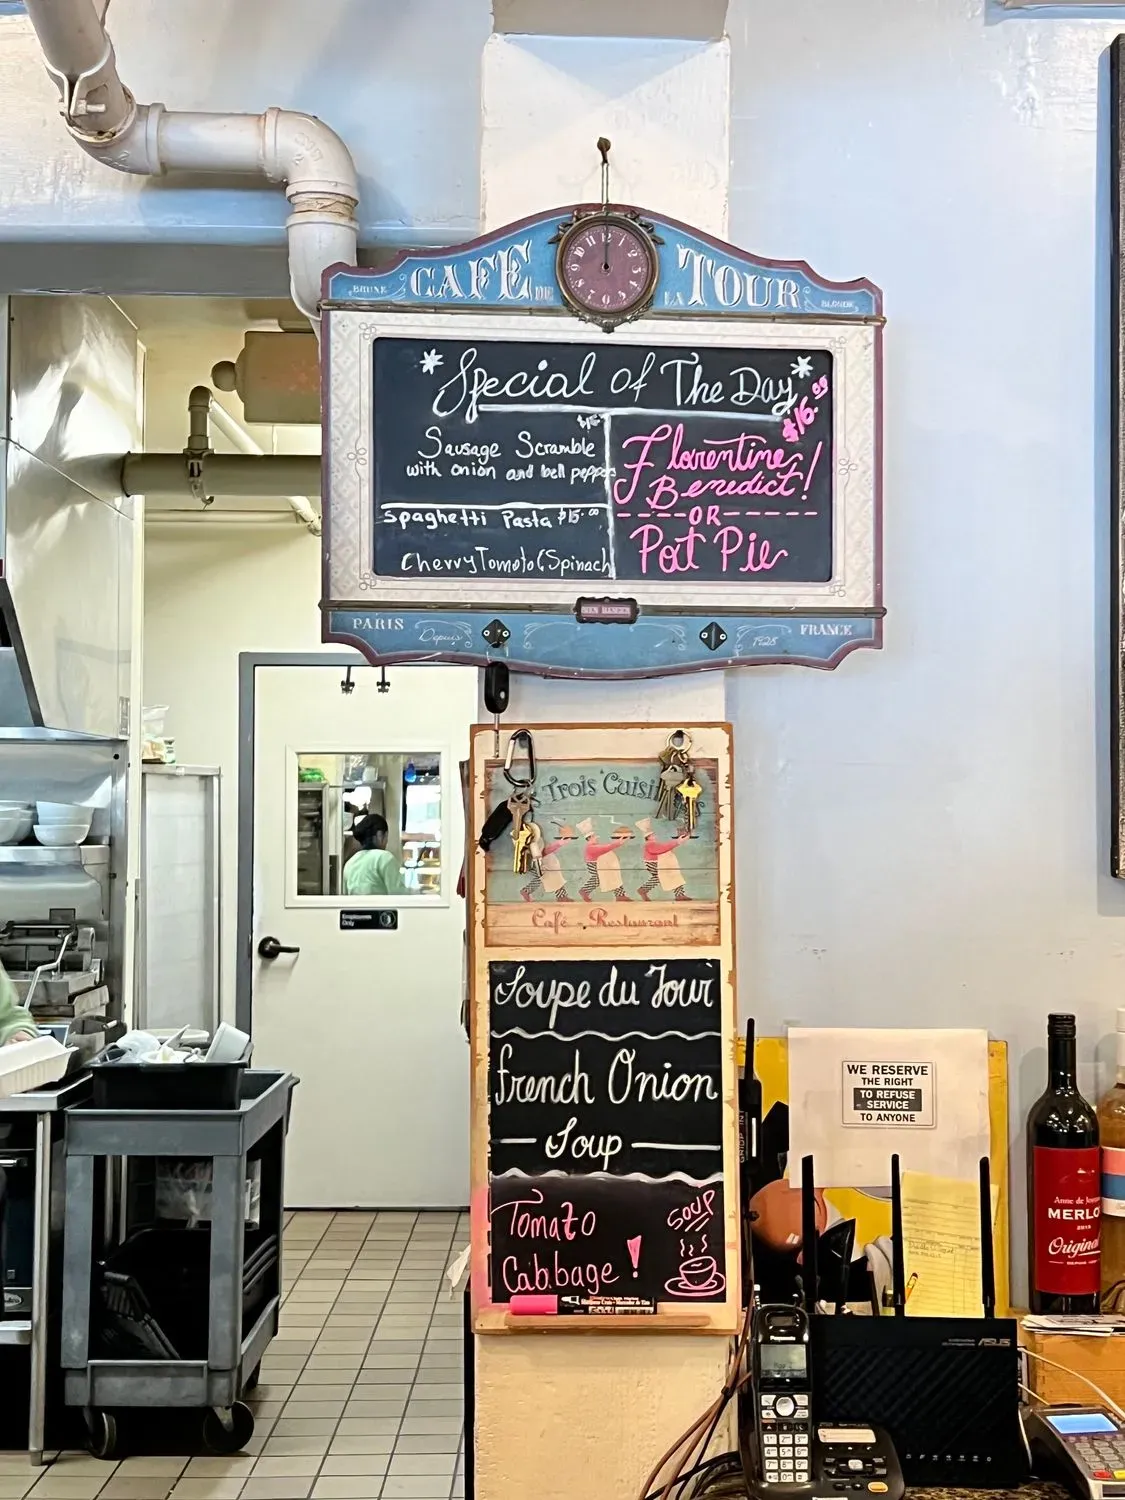 BRUNE CAFE DE LA TOUR BLONDE
* Special of The Day *
$16.99
$15
Sausage Scramble
with onion and bell peppers
Spaghetti Pasta $15.00
Cherry Tomato & Spinach
Florentine
Benedict!
OR
Pot Pie
PARIS Depuis 1928 FRANCE
Trois Cuisi
Café - Restaurant
Employees
Only
Soupe du Jour
French Onion
Soup
Tomato
Cabbage!
SOUP
WE RESERVE
THE RIGHT
TO REFUSE
SERVICE
TO ANYONE
MERLO
Original
Panasonic
ASUS